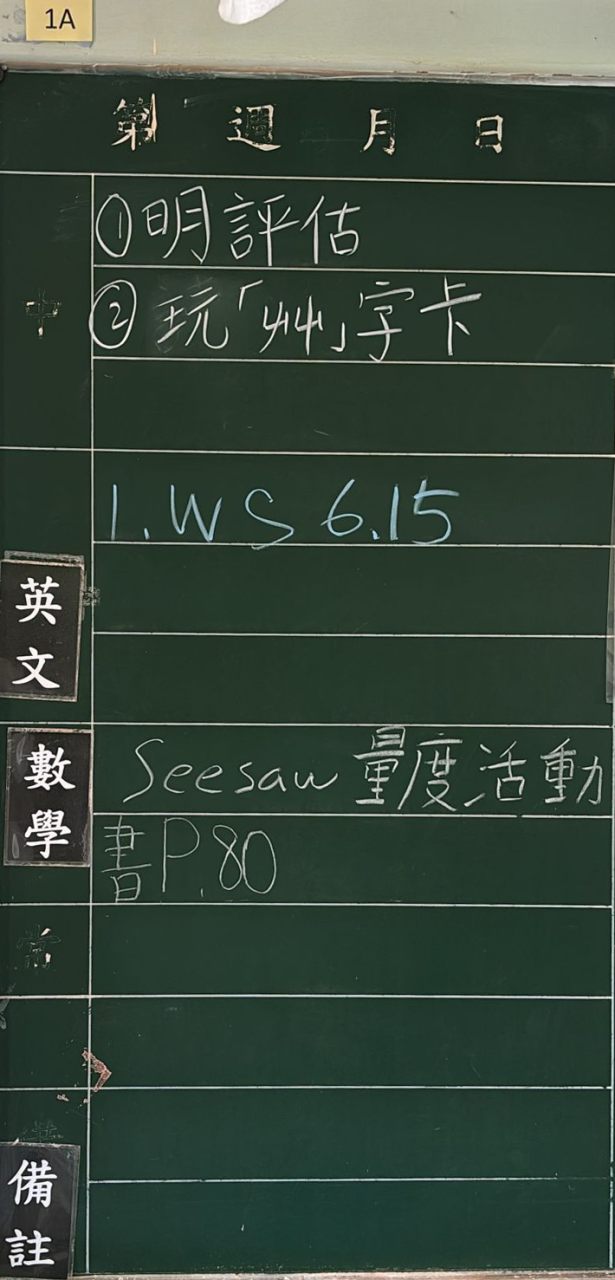 1A
第 週 月 日
中
①明評估
②玩「艸」字卡
1.WS 6.15
英文
數學
Seesaw 量度活動
書P.80
常
備註